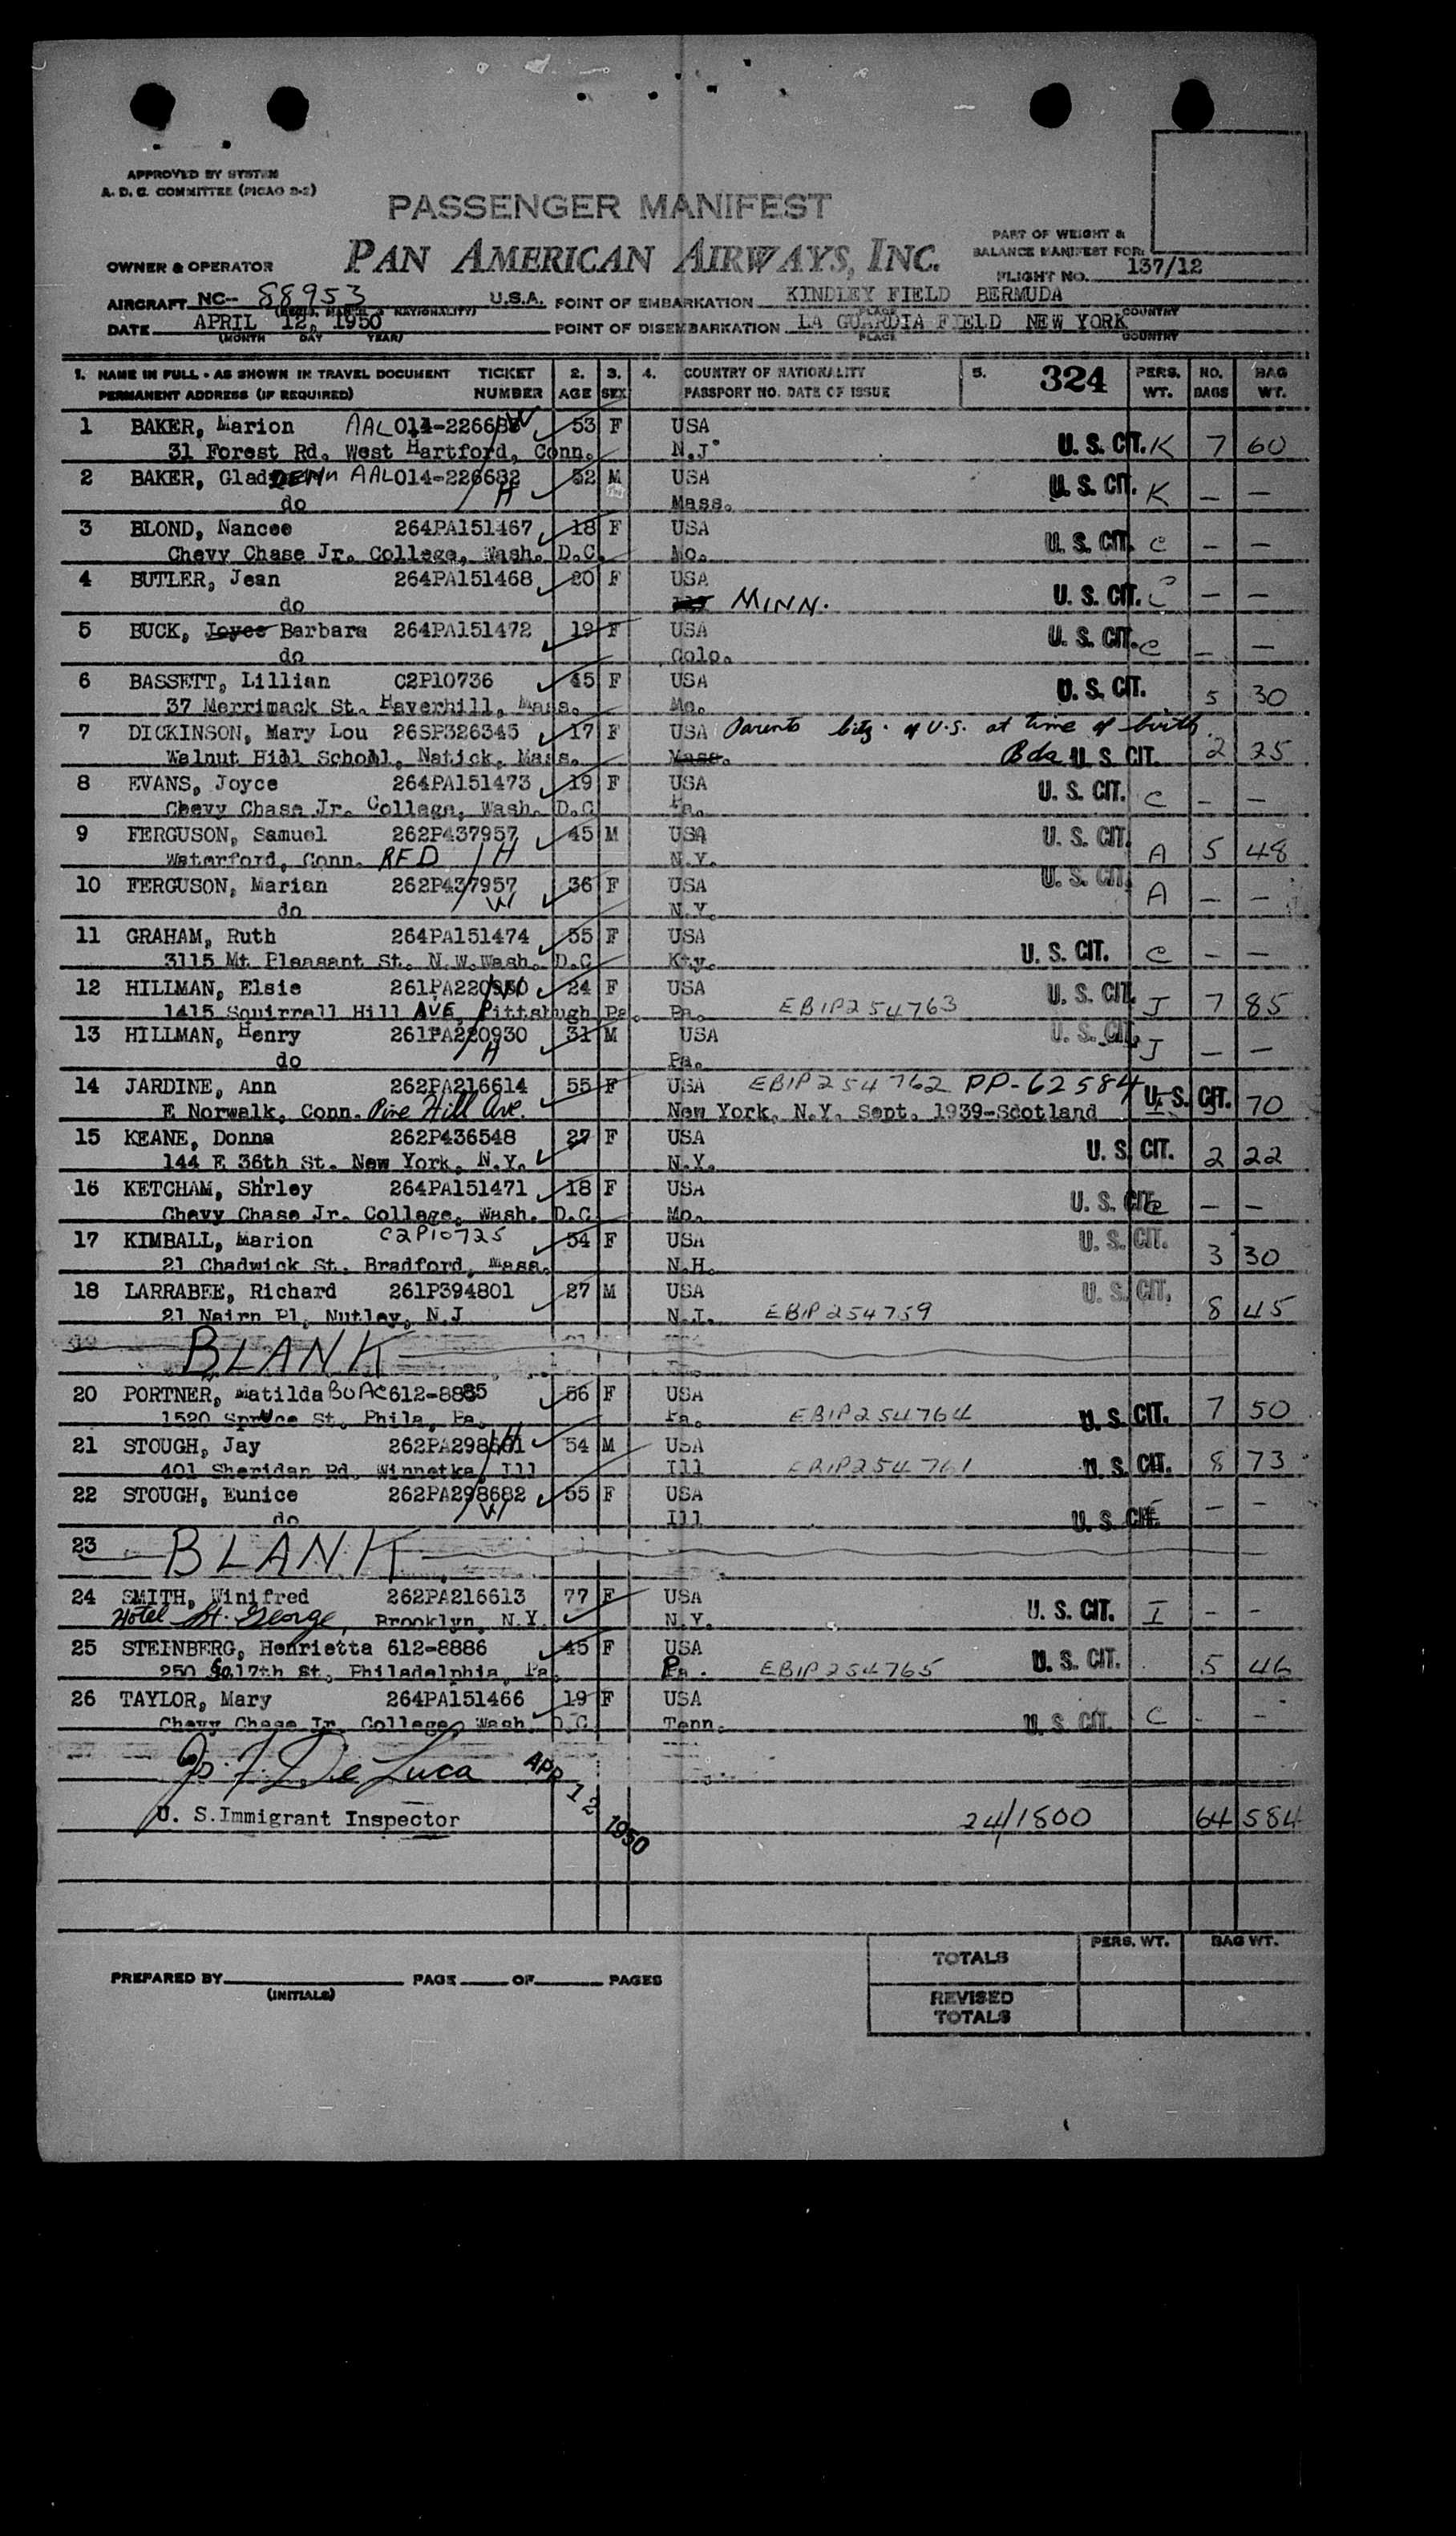 APPROVED BY SYSTEM
A. D. C. COMMITTEE (PICAO 2-2)
PASSENGER MANIFEST
PAN AMERICAN AIRWAYS, INC.
PART OF WEIGHT &
BALANCE MANIFEST FOR:
FLIGHT NO. 137/12
OWNER & OPERATOR
AIRCRAFT NC-- 88953 U.S.A. POINT OF EMBARKATION KINDLEY FIELD BERMUDA
NATIONALITY) PLACE COUNTRY
DATE APRIL 12, 1950 POINT OF DISEMBARKATION LA GUARDIA FIELD NEW YORK
(MONTH DAY YEAR) PLACE COUNTRY
1. NAME IN FULL - AS SHOWN IN TRAVEL DOCUMENT TICKET 2. 3. 4. COUNTRY OF NATIONALITY 5. 324 PERS. NO. BAG
PERMANENT ADDRESS (IF REQUIRED) NUMBER AGE SEX PASSPORT NO. DATE OF ISSUE WT. BAGS WT.
1 BAKER, Marion AAL 014-22668 W 53 F USA
31 Forest Rd. West Hartford, Conn. N.J. U. S. CIT. K 7 60
2 BAKER, Glad AAL 014-226682 52 M USA U. S. CIT. K — —
do H Mass.
3 BLOND, Nancee 264PA151467 18 F USA
Chevy Chase Jr. College, Wash. D.C. Mo. U. S. CIT. C — —
4 BUTLER, Jean 264PA151468 20 F USA
do MINN. U. S. CIT. C — —
5 BUCK, Joyce Barbara 264PA151472 19 F USA U. S. CIT. C — —
do Colo.
6 BASSETT, Lillian C2P10736 45 F USA U. S. CIT. 5 30
37 Merrimack St. Haverhill, Mass. Mo.
7 DICKINSON, Mary Lou 26SP326345 17 F USA Parents citz. of U.S. at time of birth.
Walnut Hill School, Natick, Mass. Mass. Bda U. S. CIT. 2 25
8 EVANS, Joyce 264PA151473 19 F USA U. S. CIT. C — —
Chevy Chase Jr. College, Wash. D.C Pa.
9 FERGUSON, Samuel 262P437957 45 M USA U. S. CIT. A 5 48
Waterford, Conn. RFD H N.Y.
10 FERGUSON, Marian 262P437957 36 F USA U. S. CIT. A — —
do W N.Y.
11 GRAHAM, Ruth 264PA151474 55 F USA
3115 Mt Pleasant St. N.W. Wash. D.C Kty. U. S. CIT. C — —
12 HILLMAN, Elsie 261PA220930 W 24 F USA
1415 Squirrell Hill AVE, Pittsbugh Pa. Pa. EBIP254763 U. S. CIT. J 7 85
13 HILLMAN, Henry 261PA220930 31 M USA U. S. CIT. J — —
do H Pa.
14 JARDINE, Ann 262PA216614 55 F USA EBIP254762 PP-62584
E Norwalk, Conn. Pine Hill Ave. New York, N.Y. Sept. 1939-Scotland U. S. CIT. 70
15 KEANE, Donna 262P436548 27 F USA
144 E 36th St. New York, N.Y. N.Y. U. S. CIT. 2 22
16 KETCHAM, Shirley 264PA151471 18 F USA
Chevy Chase Jr. College, Wash. D.C Mo. U. S. CIT. — —
17 KIMBALL, Marion C2P10725 54 F USA U. S. CIT. 3 30
21 Chadwick St. Bradford, Mass. N.H.
18 LARRABEE, Richard 261P394801 27 M USA U. S. CIT. 8 45
21 Nairn Pl, Nutley, N.J N.J. EBIP254759
19 BLANK
20 PORTNER, Matilda BOAC 612-8885 56 F USA
1520 Spruce St. Phila, Pa. Pa. EBIP254764 U. S. CIT. 7 50
21 STOUGH, Jay 262PA298681 H 54 M USA
401 Sheridan Rd, Winnetka, Ill Ill EBIP254761 U. S. CIT. 8 73
22 STOUGH, Eunice 262PA298682 55 F USA
do W Ill U. S. CIT. — —
23 BLANK
24 SMITH, Winifred 262PA216613 77 F USA
Hotel St. George, Brooklyn, N.Y. N.Y. U. S. CIT. I — —
25 STEINBERG, Henrietta 612-8886 45 F USA
250 So. 17th St, Philadelphia, Pa. Pa. EBIP254765 U. S. CIT. 5 46
26 TAYLOR, Mary 264PA151466 19 F USA
Chevy Chase Jr. College, Wash. D.C. Tenn. U. S. CIT. C - —
Jo. F. De Luca APR 12 1950
U. S. Immigrant Inspector 24/1800 64 584
PERS. WT. BAG WT.
TOTALS
PREPARED BY PAGE OF PAGES
(INITIALS)
REVISED
TOTALS